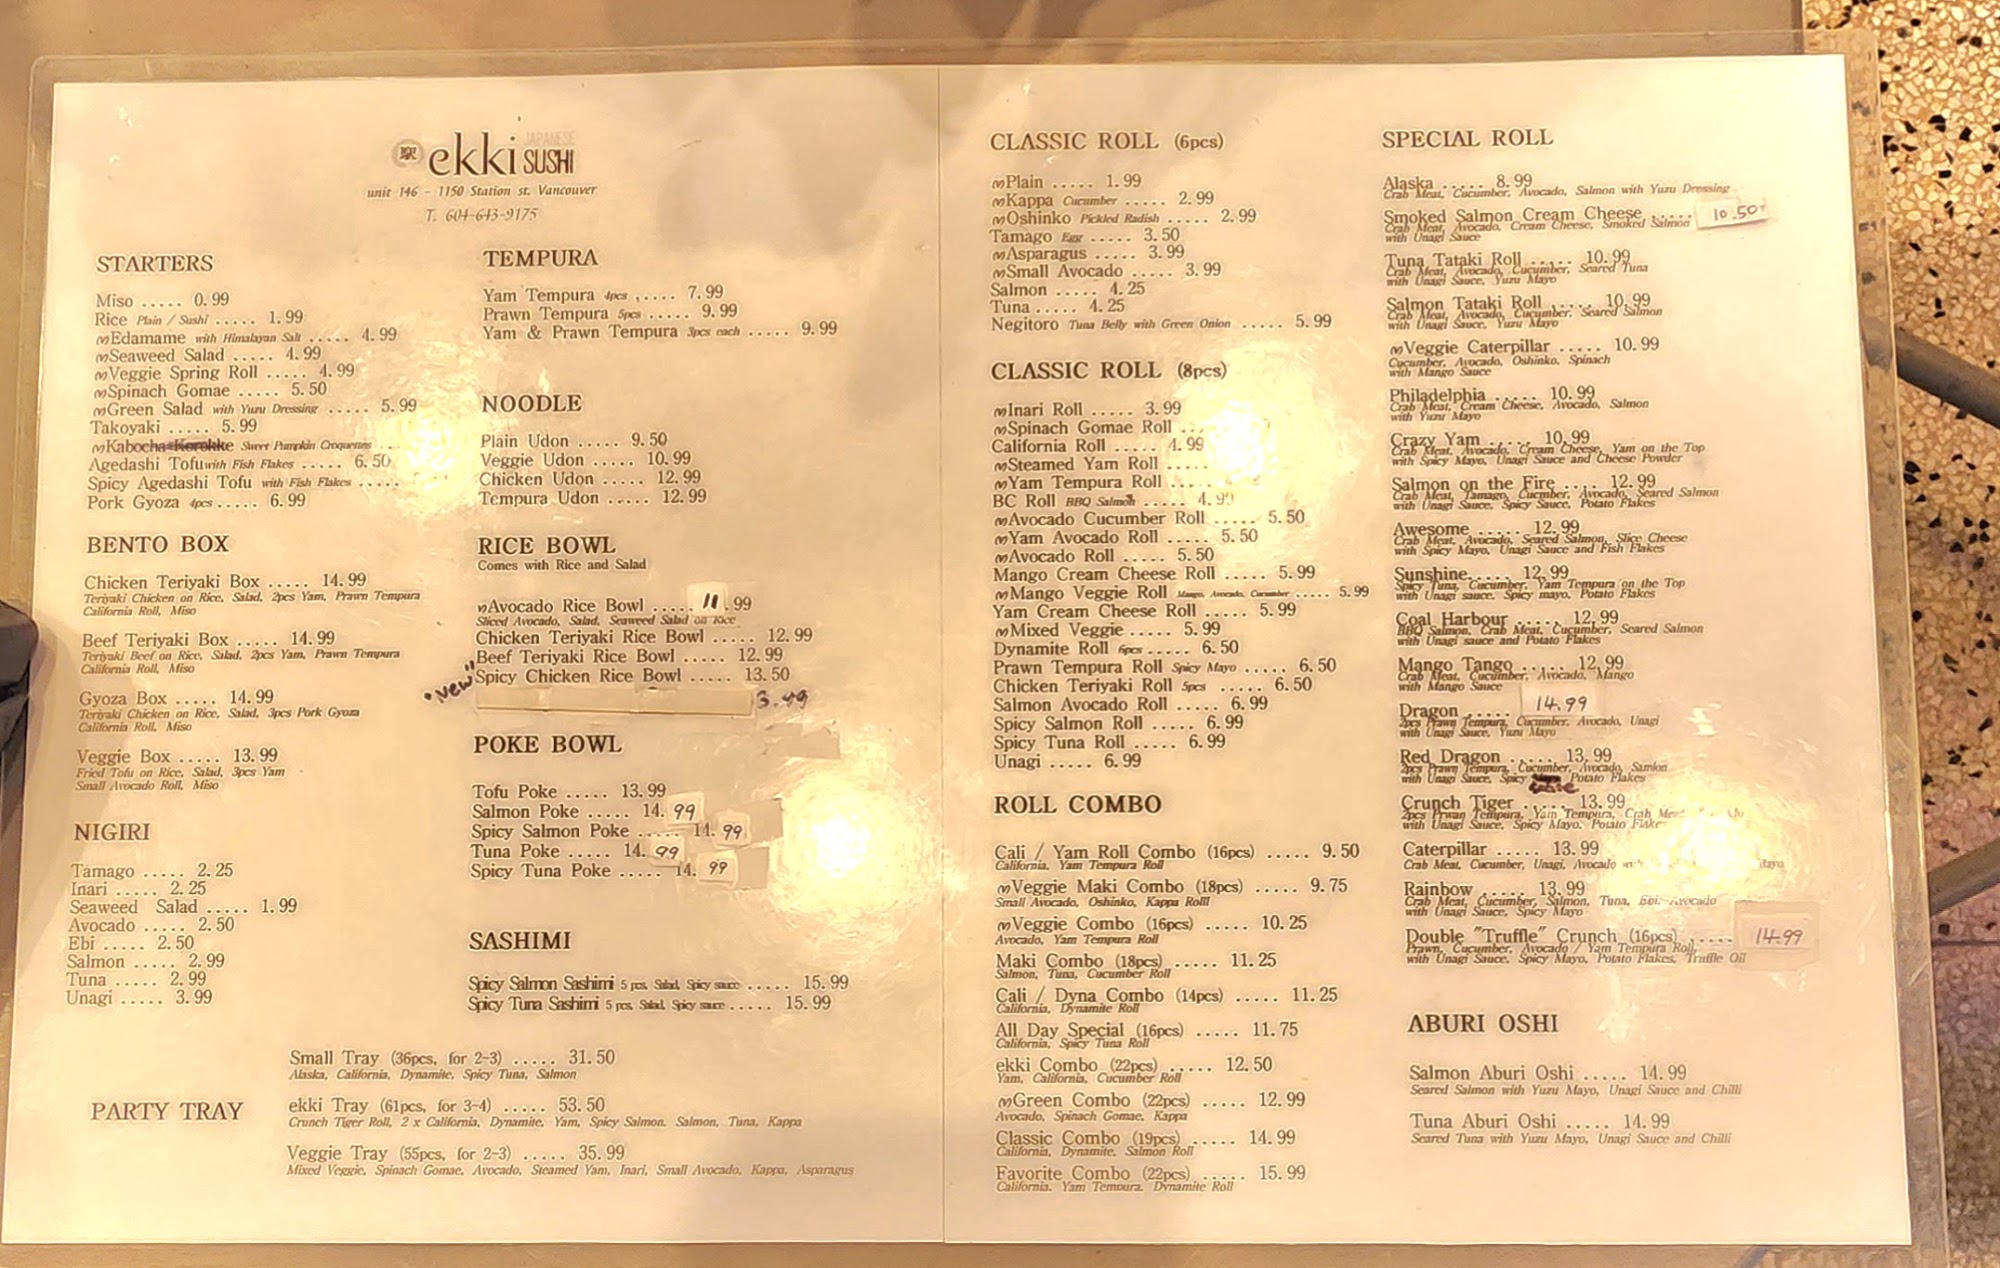 ekki JAPANESE SUSHI
unit 146 - 1150 Station st. Vancouver
T. 604-643-9175
STARTERS
Miso ..... 0.99
Rice Plain / Sushi ..... 1.99
Edamame with Himalayan Salt ..... 4.99
Seaweed Salad ..... 4.99
Veggie Spring Roll ..... 4.99
Spinach Gomae ..... 5.50
Green Salad with Yuzu Dressing ..... 5.99
Takoyaki ..... 5.99
Kabocha Korokke Sweet Pumpkin Croquettes ...
Agedashi Tofu with Fish Flakes ..... 6.50
Spicy Agedashi Tofu with Fish Flakes .....
Pork Gyoza 4pcs ..... 6.99
BENTO BOX
Chicken Teriyaki Box ..... 14.99
Teriyaki Chicken on Rice, Salad, 2pcs Yam, Prawn Tempura
California Roll, Miso
Beef Teriyaki Box ..... 14.99
Teriyaki Beef on Rice, Salad, 2pcs Yam, Prawn Tempura
California Roll, Miso
Gyoza Box ..... 14.99
Teriyaki Chicken on Rice, Salad, 3pcs Pork Gyoza
California Roll, Miso
Veggie Box ..... 13.99
Fried Tofu on Rice, Salad, 3pcs Yam
Small Avocado Roll, Miso
NIGIRI
Tamago ..... 2.25
Inari ..... 2.25
Seaweed Salad ..... 1.99
Avocado ..... 2.50
Ebi ..... 2.50
Salmon ..... 2.99
Tuna ..... 2.99
Unagi ..... 3.99
TEMPURA
Yam Tempura 4pcs ..... 7.99
Prawn Tempura 5pcs ..... 9.99
Yam & Prawn Tempura 3pcs each ..... 9.99
NOODLE
Plain Udon ..... 9.50
Veggie Udon ..... 10.99
Chicken Udon ..... 12.99
Tempura Udon ..... 12.99
RICE BOWL
Comes with Rice and Salad
Avocado Rice Bowl ..... 11.99
Sliced Avocado, Salad, Seaweed Salad on Rice
Chicken Teriyaki Rice Bowl ..... 12.99
Beef Teriyaki Rice Bowl ..... 12.99
"New" Spicy Chicken Rice Bowl ..... 13.50
3.49
POKE BOWL
Tofu Poke ..... 13.99
Salmon Poke ..... 14.99
Spicy Salmon Poke ..... 14.99
Tuna Poke ..... 14.99
Spicy Tuna Poke ..... 14.99
SASHIMI
Spicy Salmon Sashimi 5 pcs, Salad, Spicy sauce ..... 15.99
Spicy Tuna Sashimi 5 pcs, Salad, Spicy sauce ..... 15.99
PARTY TRAY
Small Tray (36pcs, for 2-3) ..... 31.50
Alaska, California, Dynamite, Spicy Tuna, Salmon
ekki Tray (61pcs, for 3-4) ..... 53.50
Crunch Tiger Roll, 2 x California, Dynamite, Yam, Spicy Salmon. Salmon, Tuna, Kappa
Veggie Tray (55pcs, for 2-3) ..... 35.99
Mixed Veggie, Spinach Gomae, Avocado, Steamed Yam, Inari, Small Avocado, Kappa, Asparagus
CLASSIC ROLL (6pcs)
Plain ..... 1.99
Kappa Cucumber ..... 2.99
Oshinko Pickled Radish ..... 2.99
Tamago Egg ..... 3.50
Asparagus ..... 3.99
Small Avocado ..... 3.99
Salmon ..... 4.25
Tuna ..... 4.25
Negitoro Tuna Belly with Green Onion ..... 5.99
CLASSIC ROLL (8pcs)
Inari Roll ..... 3.99
Spinach Gomae Roll ...
California Roll ..... 4.99
Steamed Yam Roll .....
Yam Tempura Roll .....
BC Roll BBQ Salmon ..... 4.99
Avocado Cucumber Roll ..... 5.50
Yam Avocado Roll ..... 5.50
Avocado Roll ..... 5.50
Mango Cream Cheese Roll ..... 5.99
Mango Veggie Roll Mango, Avocado, Cucumber ..... 5.99
Yam Cream Cheese Roll ..... 5.99
Mixed Veggie ..... 5.99
Dynamite Roll 6pcs ..... 6.50
Prawn Tempura Roll Spicy Mayo ..... 6.50
Chicken Teriyaki Roll 5pcs ..... 6.50
Salmon Avocado Roll ..... 6.99
Spicy Salmon Roll ..... 6.99
Spicy Tuna Roll ..... 6.99
Unagi ..... 6.99
ROLL COMBO
Cali / Yam Roll Combo (16pcs) ..... 9.50
California, Yam Tempura Roll
Veggie Maki Combo (18pcs) ..... 9.75
Small Avocado, Oshinko, Kappa Rolll
Veggie Combo (16pcs) ..... 10.25
Avocado, Yam Tempura Roll
Maki Combo (18pcs) ..... 11.25
Salmon, Tuna, Cucumber Roll
Cali / Dyna Combo (14pcs) ..... 11.25
California, Dynamite Roll
All Day Special (16pcs) ..... 11.75
California, Spicy Tuna Roll
ekki Combo (22pcs) ..... 12.50
Yam, California, Cucumber Roll
Green Combo (22pcs) ..... 12.99
Avocado, Spinach Gomae, Kappa
Classic Combo (19pcs) ..... 14.99
California, Dynamite, Salmon Roll
Favorite Combo (22pcs) ..... 15.99
California, Yam Tempura, Dynamite Roll
SPECIAL ROLL
Alaska ..... 8.99
Crab Meat, Cucumber, Avocado, Salmon with Yuzu Dressing
Smoked Salmon Cream Cheese ..... 10.50
Crab Meat, Avocado, Cream Cheese, Smoked Salmon
with Unagi Sauce
Tuna Tataki Roll ..... 10.99
Crab Meat, Avocado, Cucumber, Seared Tuna
with Unagi Sauce, Yuzu Mayo
Salmon Tataki Roll ..... 10.99
Crab Meat, Avocado, Cucumber, Seared Salmon
with Unagi Sauce, Yuzu Mayo
Veggie Caterpillar ..... 10.99
Cucumber, Avocado, Oshinko, Spinach
with Mango Sauce
Philadelphia ..... 10.99
Crab Meat, Cream Cheese, Avocado, Salmon
with Yuzu Mayo
Crazy Yam ..... 10.99
Crab Meat, Avocado, Cream Cheese, Yam on the Top
with Spicy Mayo, Unagi Sauce and Cheese Powder
Salmon on the Fire ..... 12.99
Crab Meat, Tamago, Cucmber, Avocado, Seared Salmon
with Unagi Sauce, Spicy Sauce, Potato Flakes
Awesome ..... 12.99
Crab Meat, Avocado, Seared Salmon, Slice Cheese
with Spicy Mayo, Unagi Sauce and Fish Flakes
Sunshine ..... 12.99
Spicy Tuna, Cucumber, Yam Tempura on the Top
with Unagi sauce, Spicy mayo, Potato Flakes
Coal Harbour ..... 12.99
BBQ Salmon, Crab Meat, Cucumber, Seared Salmon
with Unagi sauce and Potato Flakes
Mango Tango ..... 12.99
Crab Meat, Cucumber, Avocado, Mango
with Mango Sauce
Dragon ..... 14.99
2pcs Prawn Tempura, Cucumber, Avocado, Unagi
with Unagi Sauce, Yuzu Mayo
Red Dragon ..... 13.99
2pcs Prawn Tempura, Cucumber, Avocado, Samlon
with Unagi Sauce, Spicy Potato Flakes
Crunch Tiger ..... 13.99
2pcs Prwan Tempura, Yam Tempura, Crab Meat
with Unagi Sauce, Spicy Mayo, Potato Flake
Caterpillar ..... 13.99
Crab Meat, Cucumber, Unagi, Avocado Mayo
Rainbow ..... 13.99
Crab Meat, Cucumber, Salmon, Tuna, Ebi, Avocado
with Unagi Sauce, Spicy Mayo
Double "Truffle" Crunch (16pcs) ..... 14.99
Prawn, Cucumber, Avocado / Yam Tempura Roll
with Unagi Sauce, Spicy Mayo, Potato Flakes, Truffle Oil
ABURI OSHI
Salmon Aburi Oshi ..... 14.99
Seared Salmon with Yuzu Mayo, Unagi Sauce and Chilli
Tuna Aburi Oshi ..... 14.99
Seared Tuna with Yuzu Mayo, Unagi Sauce and Chilli